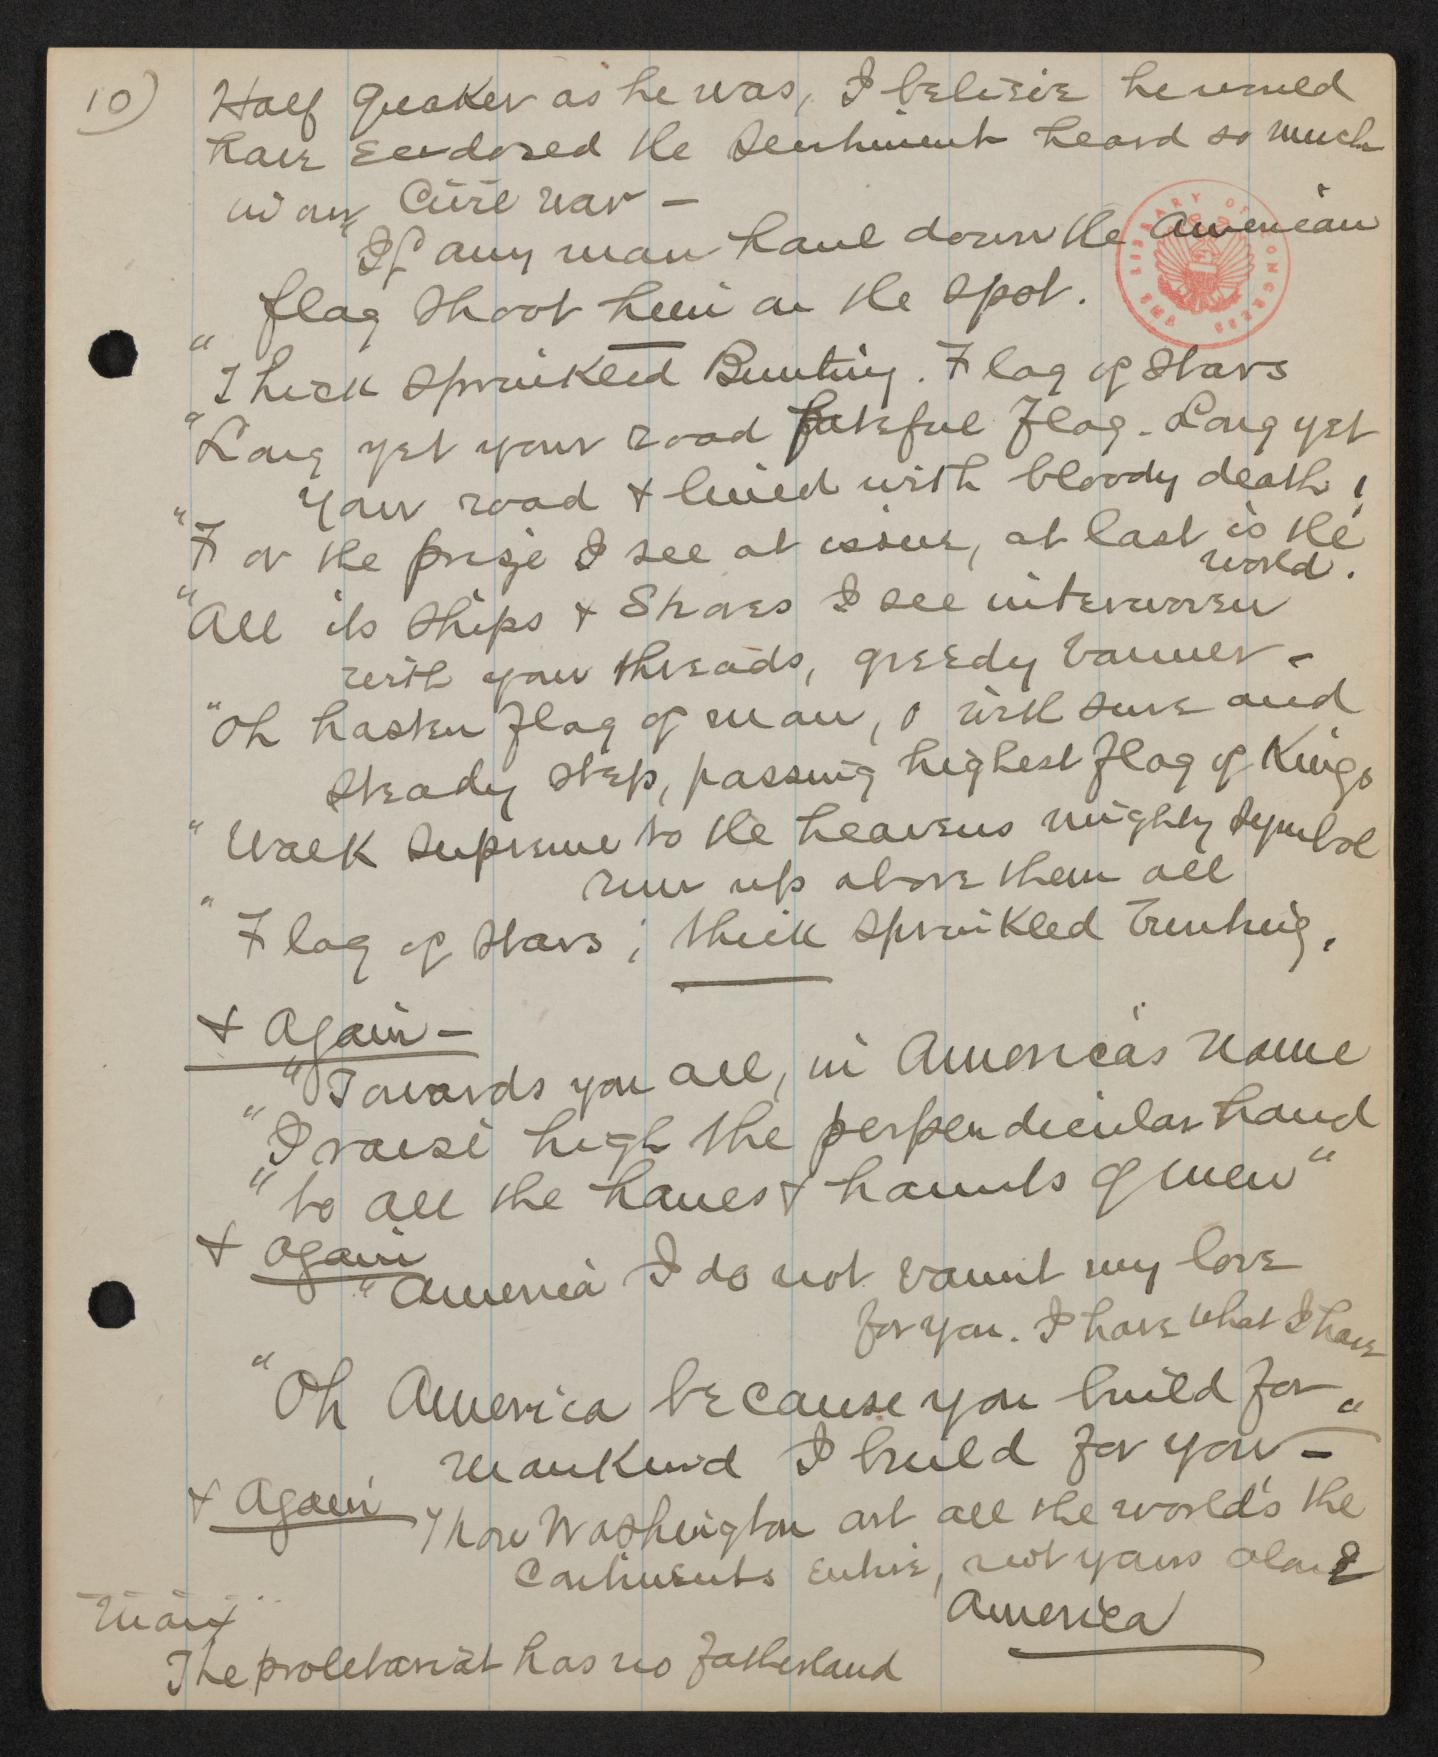 10)
Half Quaker as he was, I believe he would
have endorsed the sentiment heard so much
in our Civil War -
"If any man haul down the American
flag shoot him on the spot.
"Thick sprinkled Bunting. Flag of Stars
"Long yet your road fateful Flag - Long yet
your road & lined with bloody death!
"For the prize I see at issue, at last is the
world.
"All its ships & Shores I see interwoven
with your threads, greedy banner -
"Oh hasten flag of man, O with sure and
steady step, passing highest flag of Kings
"Walk supreme to the heavens mighty symbol
run up above them all
"Flag of stars; thick sprinkled bunting.
& Again -
"Towards you all, in America's name
"I raise high the perpendicular hand
"to all the haunts & haunts of men"
& Again
"America I do not vaunt my love
for you. I have what I have
"Oh America because you build for
mankind I build for you - "
& Again
Thou Washington art all the world's the
Continents entire, not yours alone
America
Marx
The proletariat has no fatherland
THE LIBRARY OF CONGRESS